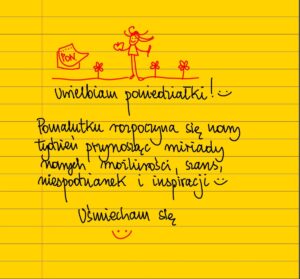 PON
Uwielbiam poniedziałki!
Pomalutku rozpoczyna się nowy
tydzień przynosząc miriady
nowych możliwości, szans,
niespodzianek i inspiracji
Uśmiecham się